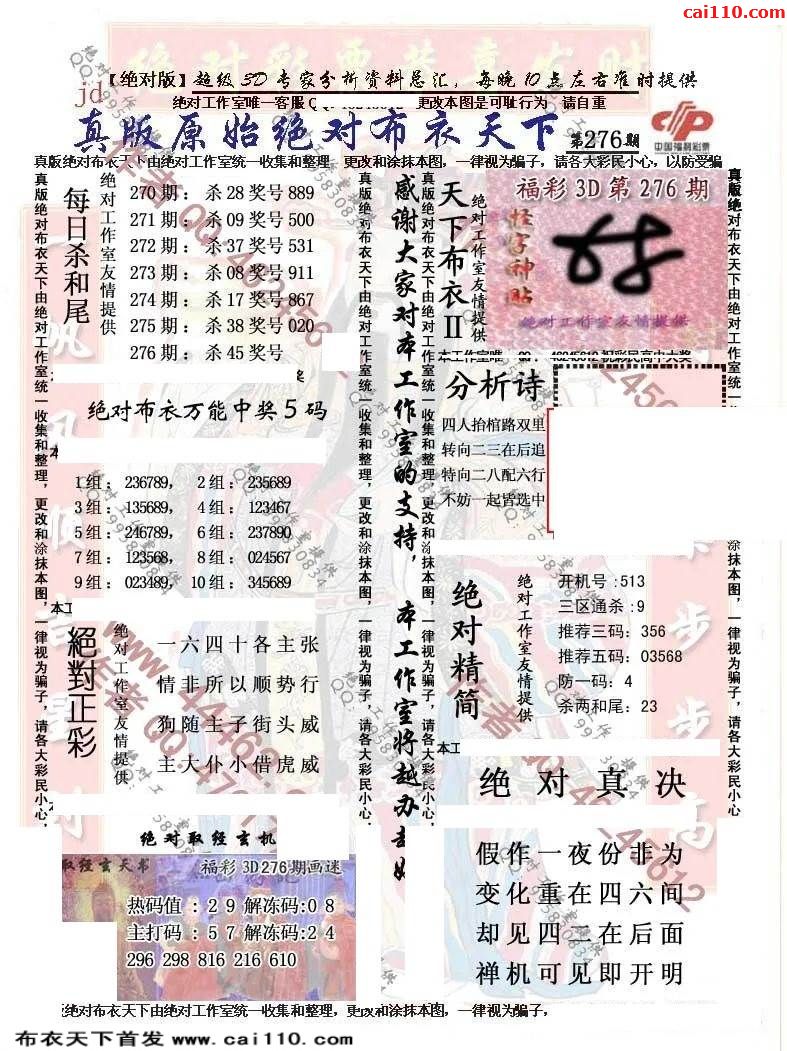 cai110.com
【绝对版】超级3D专家分析资料总汇，每晚10点左右准时提供
jd
绝对工作室唯一客服QQ 更改本图是可耻行为 请自重
真版原始绝对布衣天下 第276期
中国福利彩票
真版绝对布衣天下由绝对工作室统一收集和整理，更改和涂抹本图，一律视为骗子，请各大彩民小心，以防受骗
真版绝对布衣天下由绝对工作室统一收集和整理，更改和涂抹本图，一律视为骗子，请各大彩民小心，
每日杀和尾
绝对工作室友情提供
270期：杀28奖号889
271期：杀09奖号500
272期：杀37奖号531
273期：杀08奖号911
274期：杀17奖号867
275期：杀38奖号020
276期：杀45奖号
绝对布衣万能中奖5码
1组：236789，2组：235689
3组：135689，4组：123467
5组：246789，6组：237890
7组：123568，8组：024567
9组：023489，10组：345689
絕對正彩
绝对工作室友情提供
一六四十各主张
情非所以顺势行
狗随主子街头威
主大仆小借虎威
绝对取经玄机
取经玄天书
福彩3D276期画迷
热码值：29解冻码:08
主打码：57解冻码:24
296 298 816 216 610
真版绝对布衣天下由绝对工作室统一收集和整理，更改和涂抹本图，一律视为骗子，请各大彩民小心，
感谢大家对本工作室的支持，本工作室将越办
真版绝对布衣天下由绝对工作室统一收集和整理，更改和涂抹本图，一律视为骗子，请各大彩民小心，
天下布衣II
绝对工作室友情提供
福彩3D第276期
怪字神贴
绝对工作室友情提供
本工作室唯 QQ：46245612祝彩民高中大奖
分析诗
四人抬棺路双里
转向二三在后追
特向二八配六行
不妨一起皆选中
绝对精简
绝对工作室友情提供
开机号:513
三区通杀:9
推荐三码:356
推荐五码:03568
防一码:4
杀两和尾:23
绝对真决
假作一夜份非为
变化重在四六间
却见四二在后面
禅机可见即开明
真版绝对布衣天下由绝对工作室统一收集和整理，更改和涂抹本图，一律视为骗子，请各大彩民小心
绝对布衣天下由绝对工作室统一收集和整理，更改和涂抹本图，一律视为骗子，
布衣天下首发 www.cai110.com